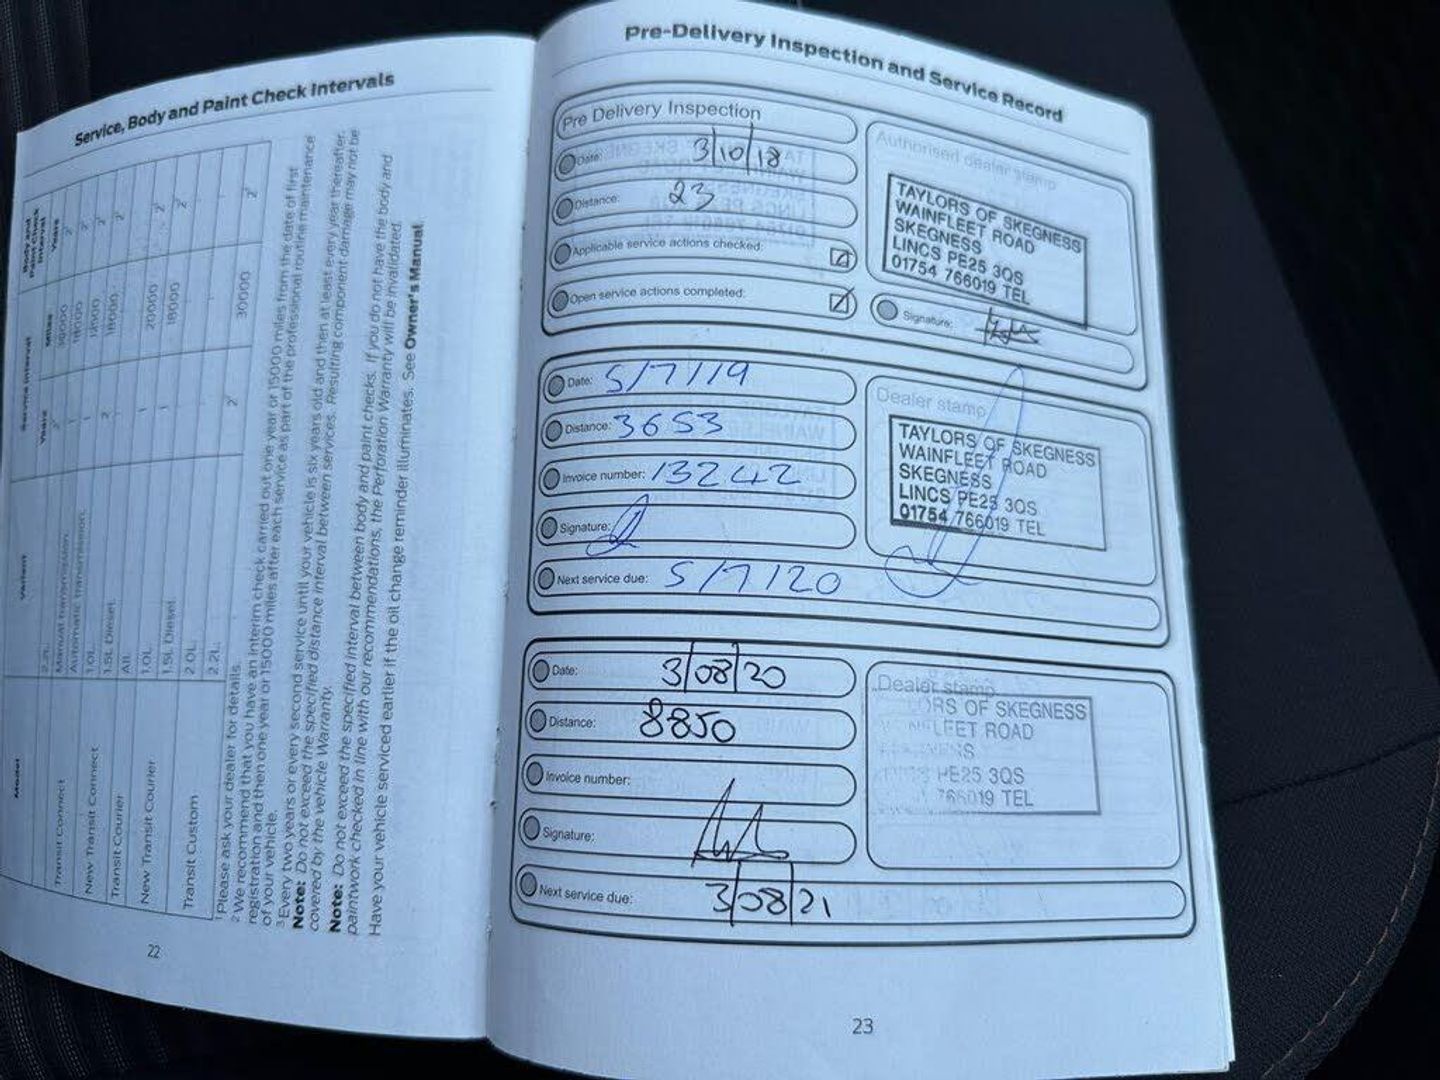 Service, Body and Paint Check Intervals
Model
Variant
Service Interval
Body and Paint Check Interval
Years
Miles
Years
Transit Connect
2.2L
Manual transmission.
Automatic transmission.
New Transit Connect
1.0L
1.5L Diesel.
Transit Courier
All.
New Transit Courier
1.0L
20000
1.5L Diesel.
18000
Transit Custom
2.0L
2.2L
30000
1 Please ask your dealer for details.
2 We recommend that you have an interim check carried out one year or 15000 miles from the date of first
registration and then one year or 15000 miles after each service as part of the professional routine maintenance
of your vehicle.
3 Every two years or every second service until your vehicle is six years old and then at least every year thereafter.
Note: Do not exceed the specified distance interval between services. Resulting component damage may not be
covered by the vehicle Warranty.
Note: Do not exceed the specified interval between body and paint checks. If you do not have the body and
paintwork checked in line with our recommendations, the Perforation Warranty will be invalidated.
Have your vehicle serviced earlier if the oil change reminder illuminates. See Owner's Manual.
22
Pre-Delivery Inspection and Service Record
Pre Delivery Inspection
Date: 3/10/18
Distance: 23
Applicable service actions checked:
Open service actions completed:
Authorised dealer stamp
TAYLORS OF SKEGNESS
WAINFLEET ROAD
SKEGNESS
LINCS PE25 3QS
01754 766019 TEL
Signature:
Date: 5/7/19
Distance: 3653
Invoice number: 13242
Signature:
Next service due: 5/7/20
Dealer stamp
TAYLORS OF SKEGNESS
WAINFLEET ROAD
SKEGNESS
LINCS PE25 3QS
01754 766019 TEL
Date: 3/08/20
Distance: 8850
Invoice number:
Signature:
Next service due: 3/08/21
Dealer stamp
LORS OF SKEGNESS
FLEET ROAD
PE25 3QS
766019 TEL
23